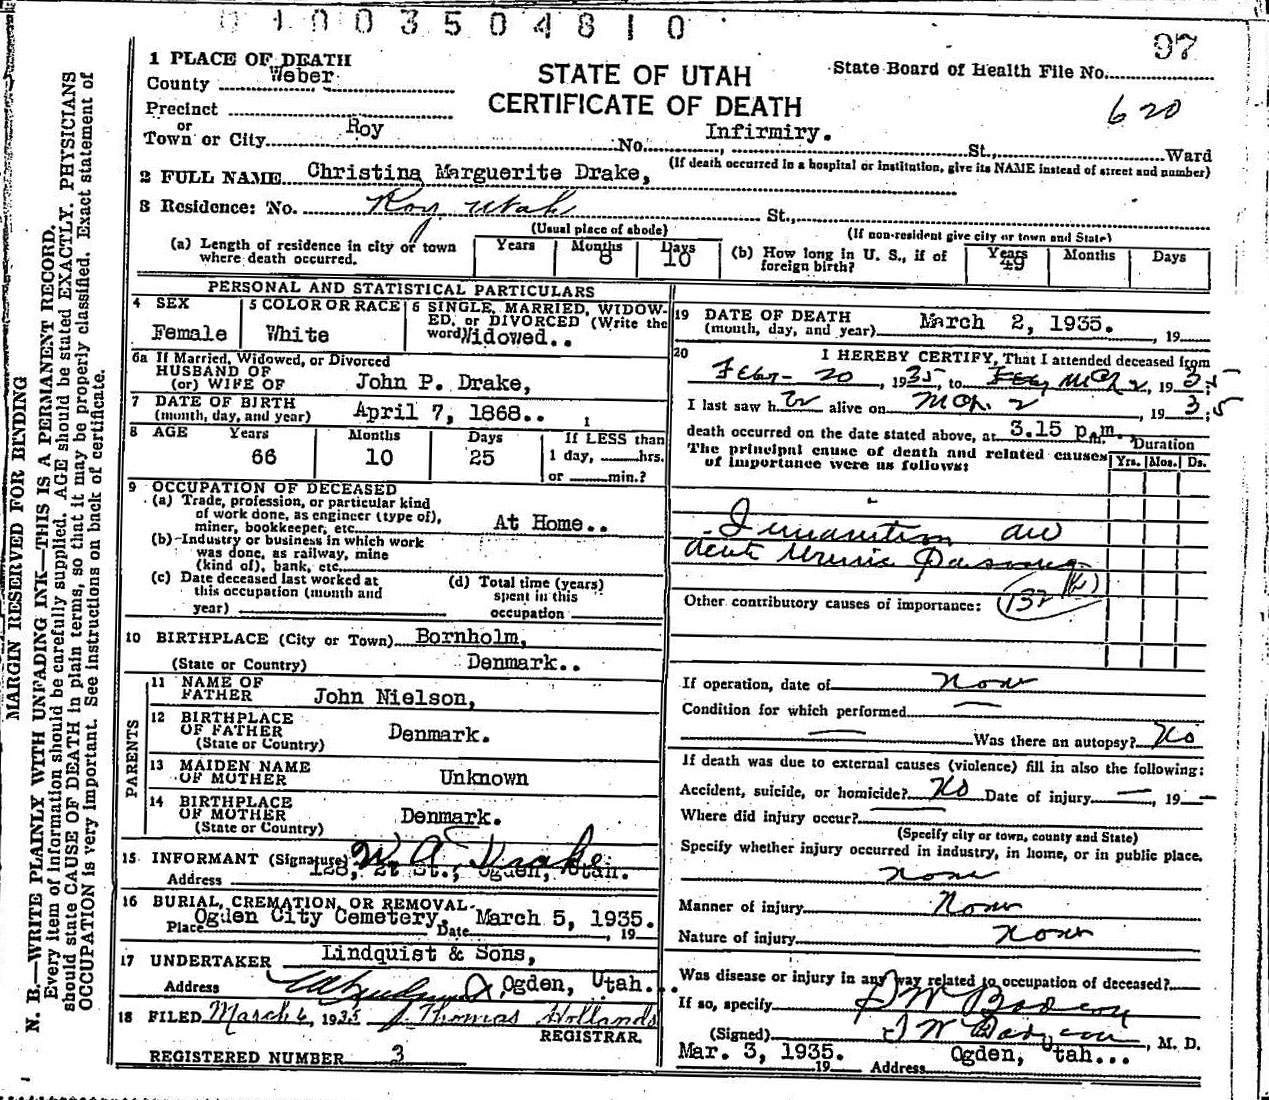 0100350481 0
97
1 PLACE OF DEATH
County Weber
STATE OF UTAH
CERTIFICATE OF DEATH
State Board of Health File No.
620
Precinct
or
Town or City Roy No. Infirmiry. St., Ward
(If death occurred in a hospital or institution, give its NAME instead of street and number)
2 FULL NAME Christina Marguerite Drake,
3 Residence: No. Roy, Utah St.,
(Usual place of abode) (If non-resident give city or town and State)
(a) Length of residence in city or town where death occurred. Years Months 8 Days 10 (b) How long in U. S., if of foreign birth? Years 49 Months Days
PERSONAL AND STATISTICAL PARTICULARS
4 SEX Female
5 COLOR OR RACE White
6 SINGLE, MARRIED, WIDOW-
ED, or DIVORCED (Write the
word) Widowed..
6a If Married, Widowed, or Divorced
HUSBAND OF
(or) WIFE OF John P. Drake,
7 DATE OF BIRTH
(month, day, and year) April 7, 1868..
8 AGE Years 66 Months 10 Days 25 If LESS than
1 day, hrs.
or min.?
9 OCCUPATION OF DECEASED
(a) Trade, profession, or particular kind
of work done, as engineer (type of),
miner, bookkeeper, etc. At Home..
(b) Industry or business in which work
was done, as railway, mine
(kind of), bank, etc.
(c) Date deceased last worked at
this occupation (month and
year)
(d) Total time (years)
spent in this
occupation
10 BIRTHPLACE (City or Town) Bornholm,
(State or Country) Denmark..
PARENTS
11 NAME OF
FATHER John Nielson,
12 BIRTHPLACE
OF FATHER
(State or Country) Denmark.
13 MAIDEN NAME
OF MOTHER Unknown
14 BIRTHPLACE
OF MOTHER
(State or Country) Denmark.
15 INFORMANT (Signature) W. A. Drake
Address 128, 21 St., Ogden, Utah.
16 BURIAL, CREMATION, OR REMOVAL
Place Ogden City Cemetery, Date March 5, 1935. , 19
17 UNDERTAKER Lindquist & Sons,
Address Ogden, Utah...
18 FILED March 6, 1935 J. Thomas Hollands
REGISTRAR.
REGISTERED NUMBER 3
19 DATE OF DEATH
(month, day, and year) March 2, 1935. , 19
20 I HEREBY CERTIFY, That I attended deceased from
Feby- 20, 1935, to Feby Mch 2, 1935
I last saw her alive on Mch. 2, 1935
death occurred on the date stated above, at 3.15 p.m.
The principal cause of death and related causes
of importance were as follows:
Duration
Yrs. Mos. Ds.
Inanition and
acute Uremic
Other contributory causes of importance:
132
If operation, date of None
Condition for which performed
Was there an autopsy? No
If death was due to external causes (violence) fill in also the following:
Accident, suicide, or homicide? No Date of injury , 19
Where did injury occur?
(Specify city or town, county and State)
Specify whether injury occurred in industry, in home, or in public place.
None
Manner of injury None
Nature of injury None
Was disease or injury in any way related to occupation of deceased?
If so, specify
(Signed) , M. D.
Mar. 3, 1935. 19 Address Ogden, Utah...
MARGIN RESERVED FOR BINDING
N. B.—WRITE PLAINLY WITH UNFADING INK—THIS IS A PERMANENT RECORD.
Every item of information should be carefully supplied. AGE should be stated EXACTLY. PHYSICIANS
should state CAUSE OF DEATH in plain terms, so that it may be properly classified. Exact statement of
OCCUPATION is very important. See instructions on back of certificate.